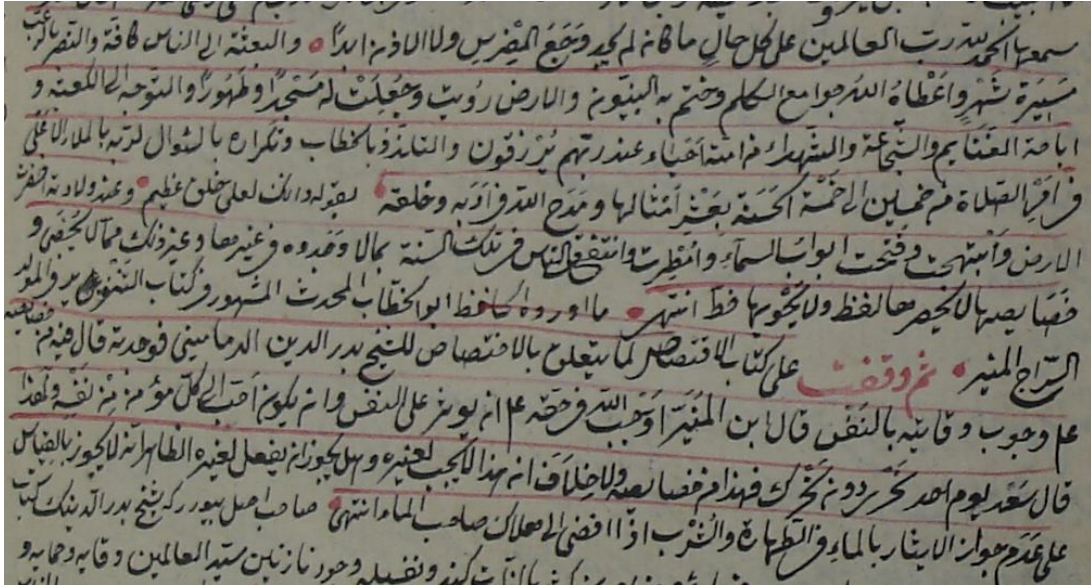 سمعها الحمد لله رب العالمين على كل حال ما كان لم يجد وجع الضرس ولا الاذن ابدًا والبعثة الى الناس كافة والنصر بالرعب
مسيرة شهر واعطاه الله جوامع الكلم وختم به النبيون والارض زويت وجعلت له مسجدًا وطهورًا والتوجه الى الكعبة و
اباحة الغنايم والشفاعة والشهداء من امته احياء عند ربهم يرزقون والتلذذ بالخطاب وتكراره بالسؤال لربه بالملاء الاعلى
في امر الصلاة من خمسين الى خمسة الحسنة بعشر امثالها ومدح الله في ادبه وخلقه لقوله وانك لعلى خلق عظيم وعند ولادته اخضرت
الارض وابتهجت وفتحت ابواب السماء وانتفع الناس في تلك السنة بمالا وجدوه في غيرها وغير ذلك مما لا يخفى و
خصايصه لا يحصرها لفظ ولا يحويها قط انتهى ما اورده الحافظ ابو الخطاب المحدث المشهور في كتاب التنوير في المولد
السراج المنير ثم وقفت على كتاب الاختصاص لما يتعلق بالاختصاص للشيخ بدر الدين الدماميني فوجدته قال فيه من خصايصه
عم وجوب وقايته بالنفس قال ابن المنير اوجب الله في حقه عم ان يوثر على النفس وان يكون احب الى كل مؤمن من نفسه ولهذا
قال سعد يوم احد نحري دون نحرك فهذا من خصايصه ولا خلاف ان هذا لا يجب لغيره وهل يجوز ان يفعل لغيره الظاهر انه لا يجوز بالقياس
على عدم جواز الايثار بالماء في الطهارة والشرب اذا افضى الى هلاك صاحب الماء انتهى صاحب اصل بيورر كه شيخ بدر الدينك كتاب
سيد العالمين وقايه وحمايه و